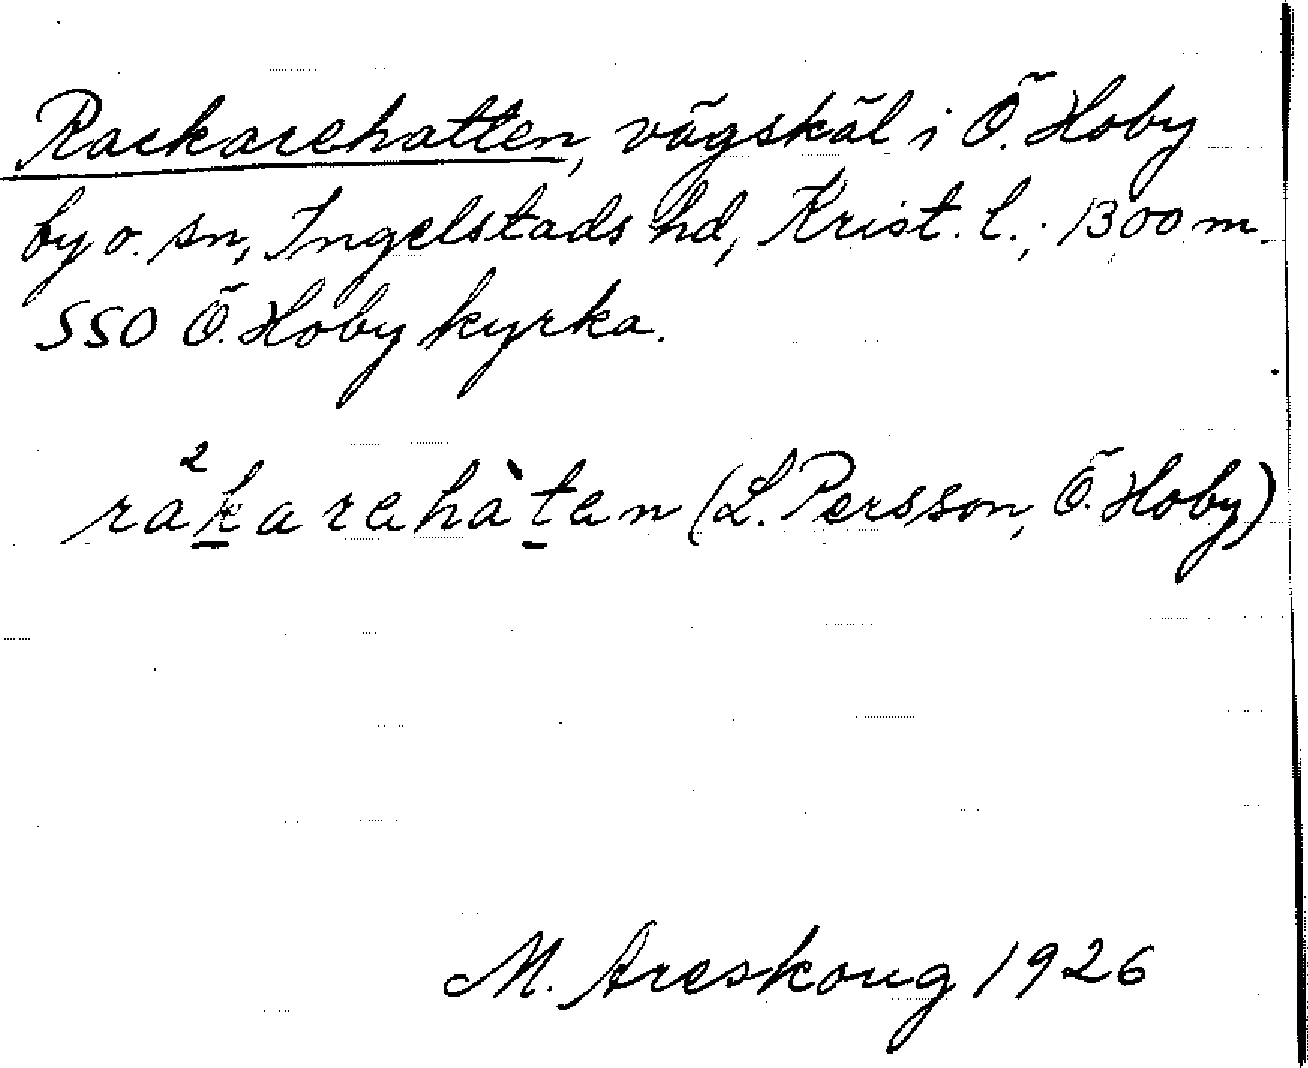 Rackarehatten, vägskäl i Ö. Hoby
by o. sn, Ingelstads hd, Krist. l.; 1300 m.
SSO Ö. Hoby kyrka.
ra²k̲arehàt̲en (L. Persson, Ö. Hoby)
M. Areskoug 1926